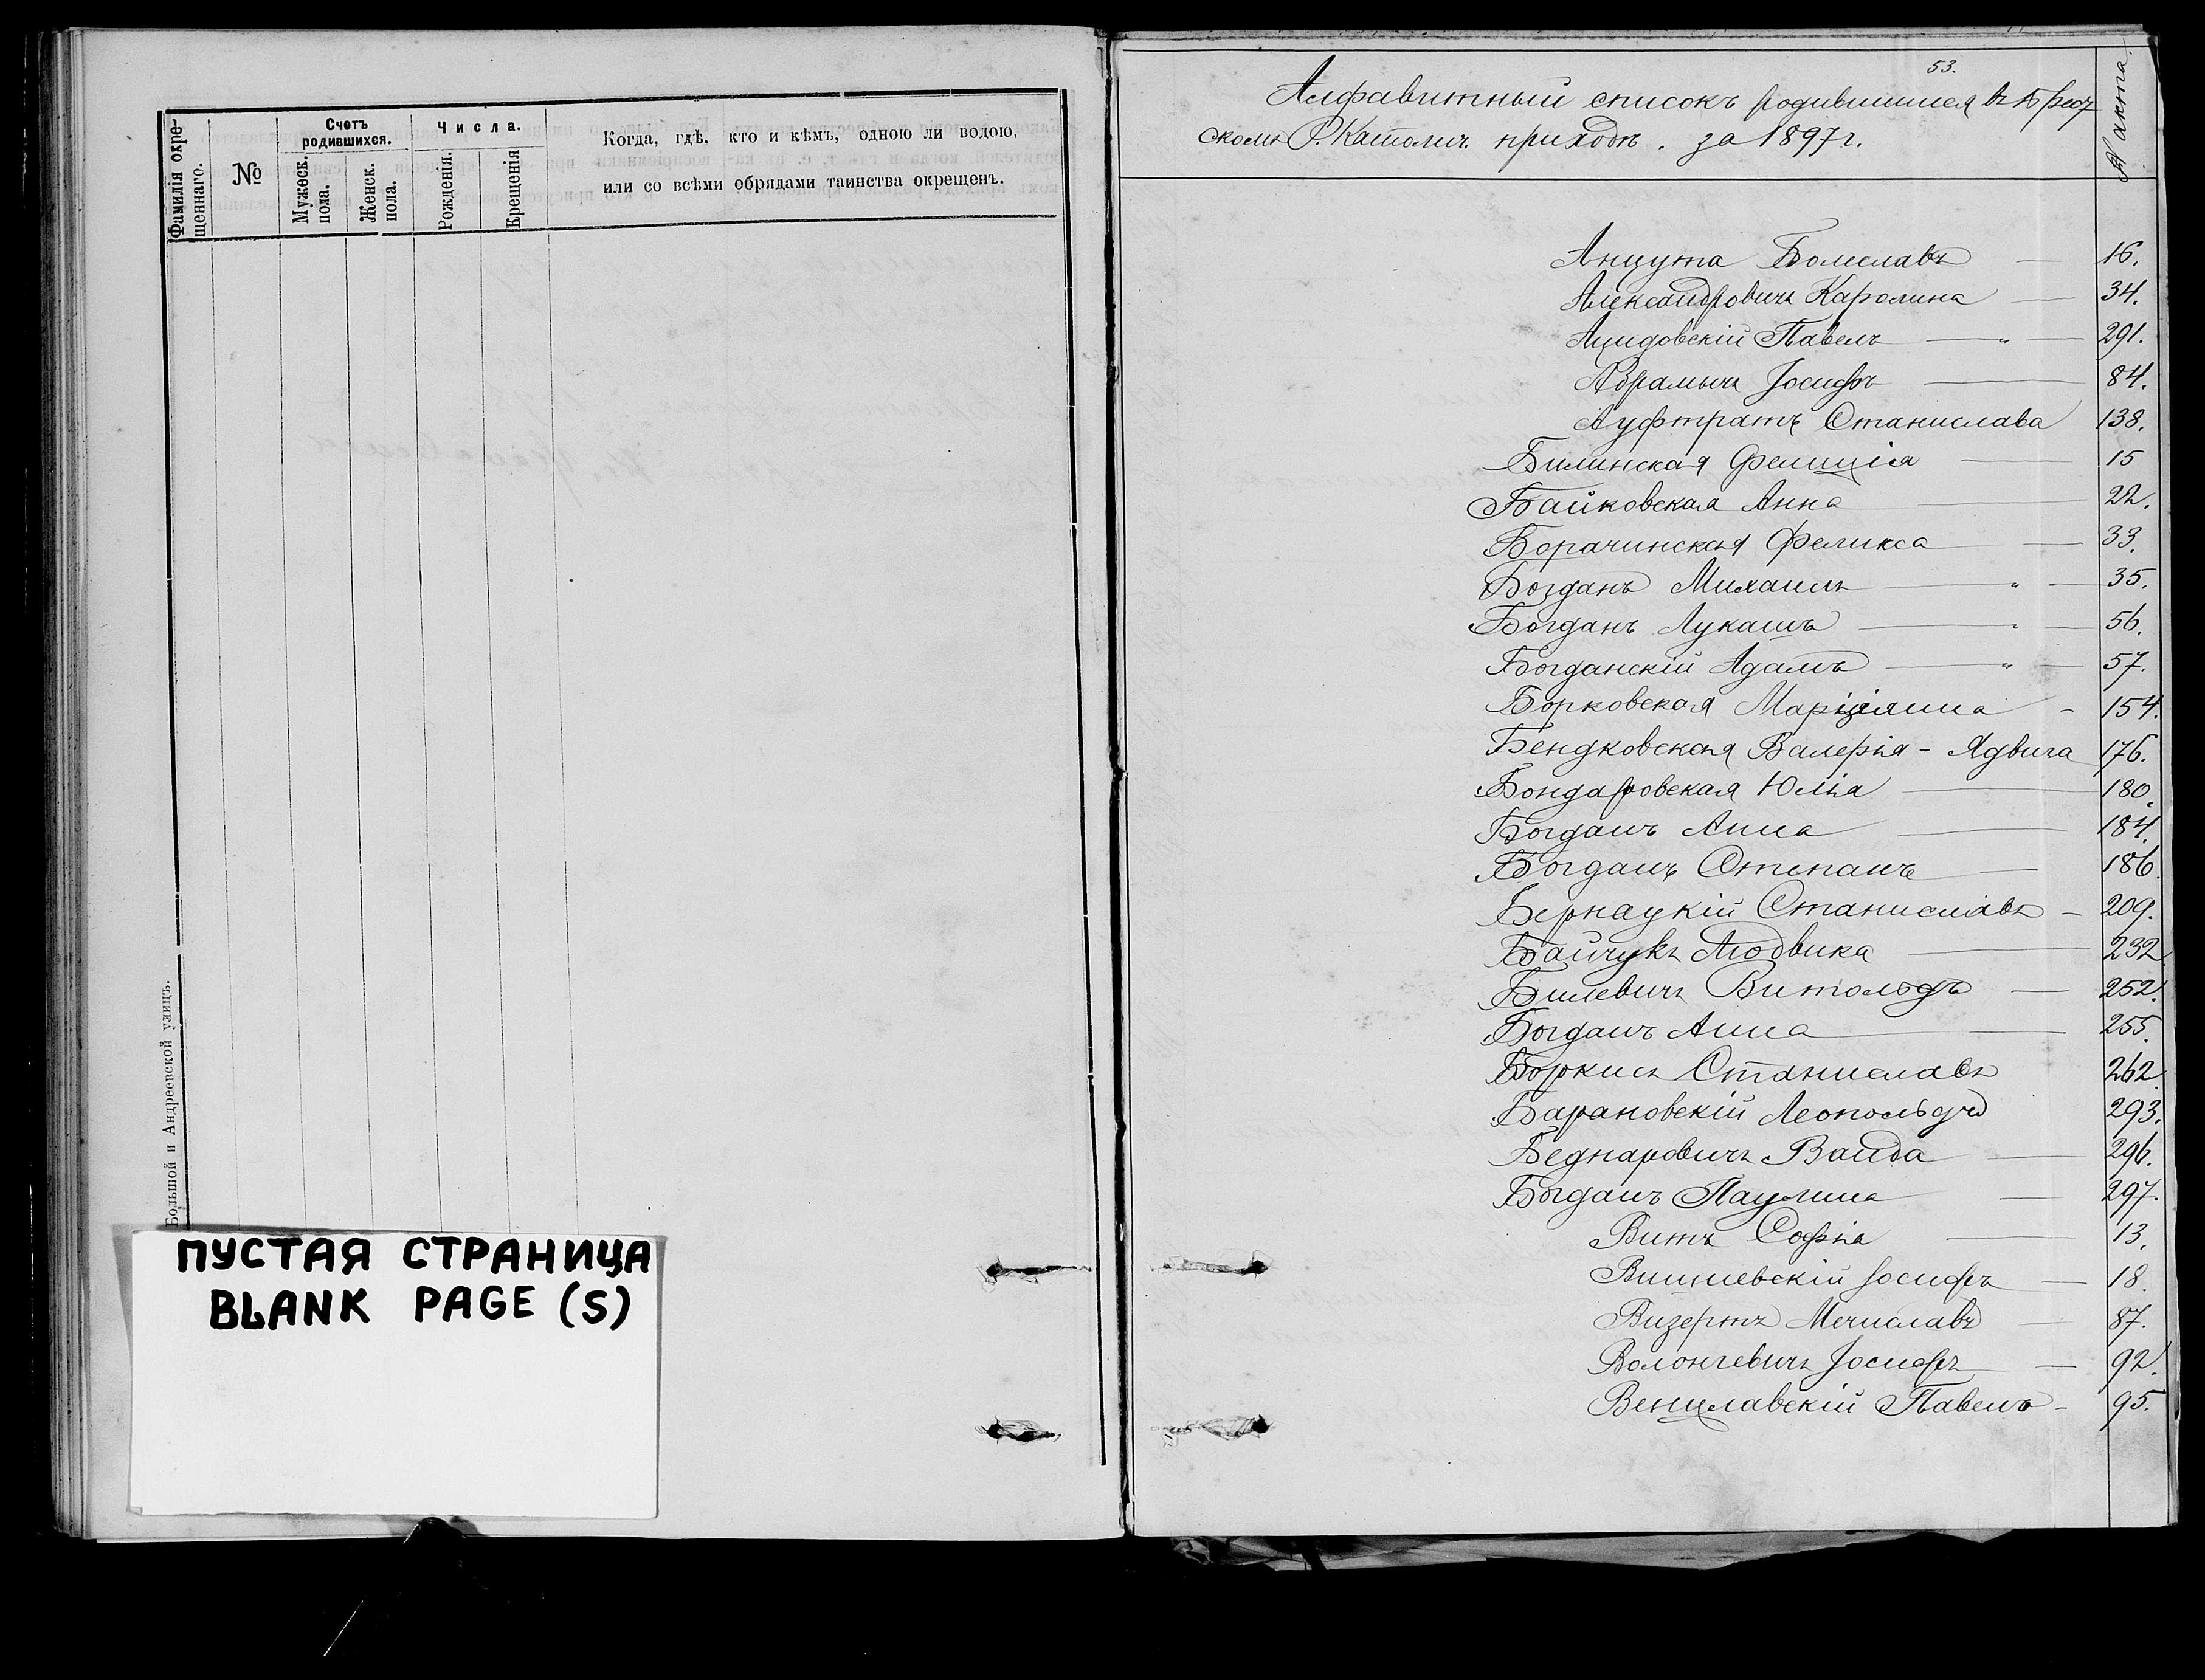 Фамилія окре-
щеннаго.
№
Счетъ
родившихся.
Мужеск.
пола.
Женск.
пола.
Числа.
Рожденія.
Крещенія
Когда, гдѣ, кто и кѣмъ, одною ли водою,
или со всѣми обрядами таинства окрещенъ.
Большой и Андреевской улицъ.
ПУСТАЯ СТРАНИЦА
BLANK PAGE (S)
53.
Алфавитный списокъ родившимся въ Брест
скомъ Р. Католич. приходѣ. за 1897 г.
№ акта.
Анцута Болеславъ — 16.
Александровичъ Каролина — 34.
Павелъ — " — 291.
Абрамычъ Іосифъ — 84.
Ауфтратъ Станислава 138.
Билинская Фелиція — 15
Байковская Анна — 22.
Борачинская Феликса — 33.
Богданъ Михаилъ — " — 35.
Богданъ Лукашъ — " — 56.
Богданскій Адамъ — " — 57.
Борковская Марціялина - 154.
Бендковская Валерія - Ядвига 176.
Бондаровская Юлія — 180.
Богданъ Анна — 184.
Богданъ Степанъ — 186.
Бернацкій Станиславъ — 209.
Байчукъ Людвика — 232
Билевичъ Витольдъ — 252.
Богданъ Анна — 255.
Станиславъ 262.
Барановскій Леопольдъ 293.
Беднаровичъ Ванда — 296.
Богданъ Паулина — 297.
Витъ Софія — 13.
Вишневскій Іосифъ — 18.
Визертъ Мечиславъ — 87.
Волонгевичъ Іосифъ — 92.
Венцлавскій Павелъ - 95.